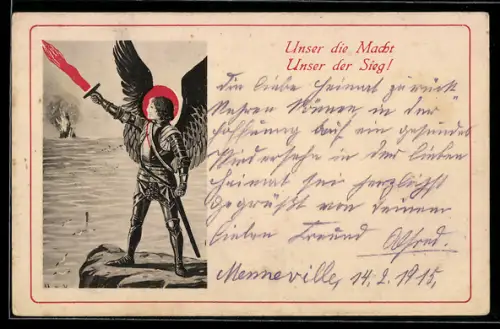 Unser die Macht
Unser der Sieg!
die liebe Heimat zurück
kehren können, in der
Hoffnung auf ein gesundes
Wiedersehn in der lieben
Heimat sei herzlichst
Gegrüßt von deinem
lieben Freund Alfred.
Menneville, 14.2.1915,